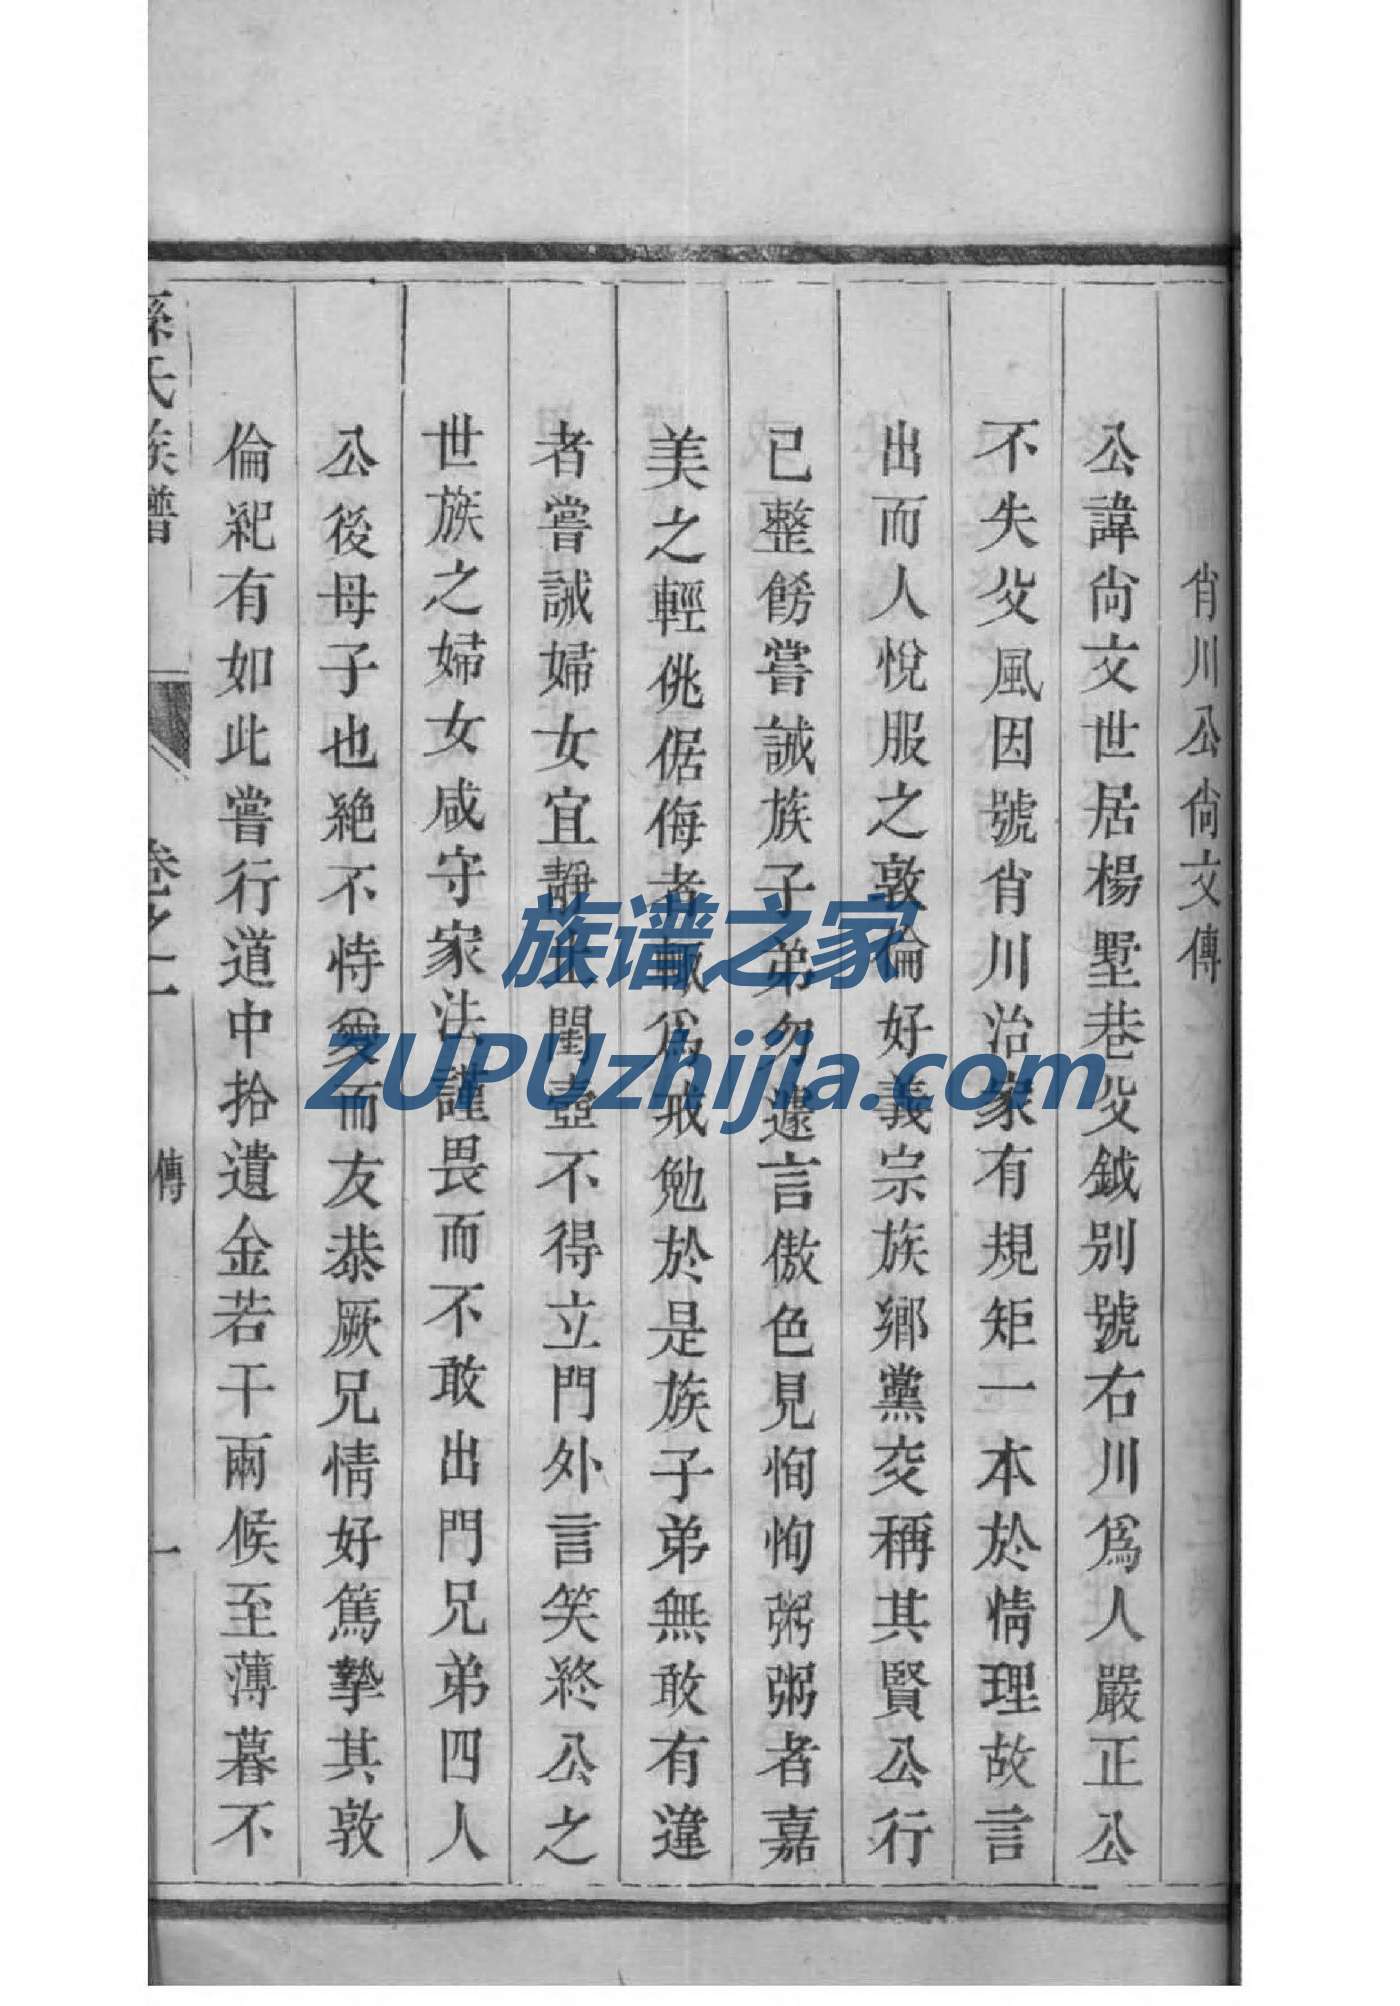 肖川公尙文傳
公諱尙文世居楊墅巷父鉞別號右川爲人嚴正公
不失父風因號肖川治家有規矩一本於情理故言
出而人悅服之敦倫好義宗族鄉黨交稱其賢公行
已整餝嘗誡族子弟勿遽言傲色見恂恂粥粥者嘉
美之輕佻倨侮者輒爲戒勉於是族子弟無敢有違
者嘗誡婦女宜靜正閨壼不得立門外言笑終公之
世族之婦女咸守家法謹畏而不敢出門兄弟四人
公後母子也絕不恃愛而友恭厥兄情好篤摯其敦
倫紀有如此嘗行道中拾遺金若干兩候至薄暮不
孫氏族譜 卷之一 傳 一
族谱之家
ZUPUzhijia.com